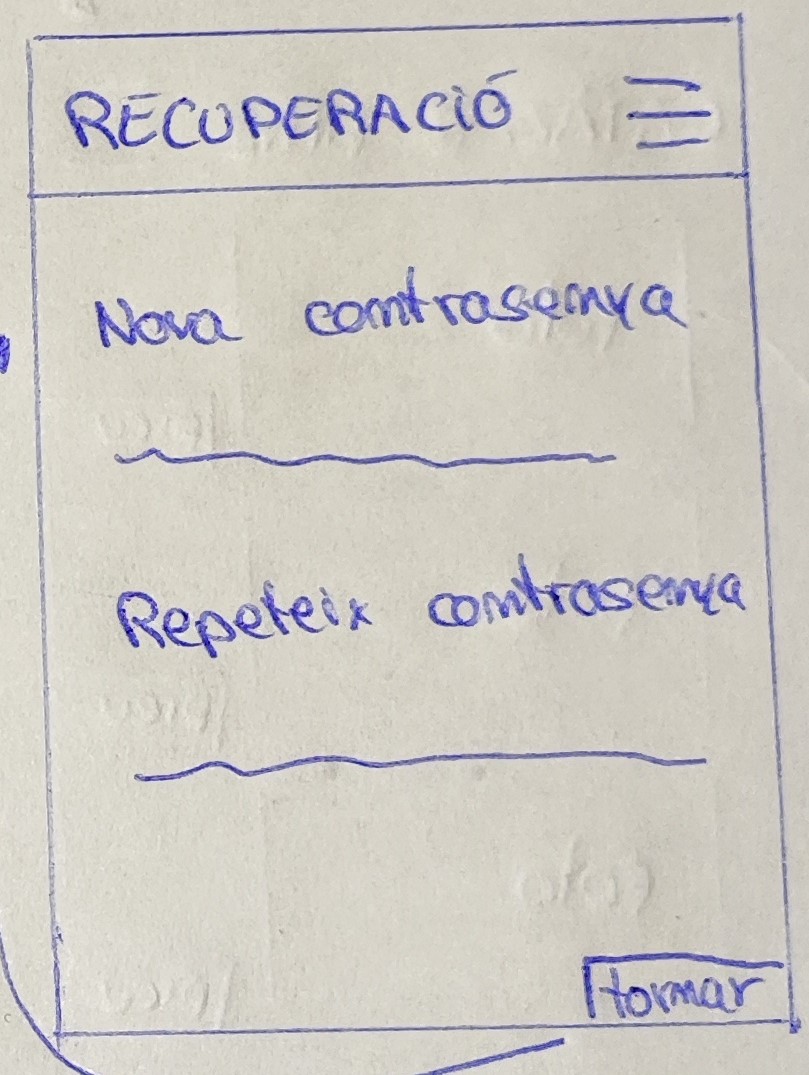 RECUPERACIÓ
Nova contrasenya
Repeteix contrasenya
tornar